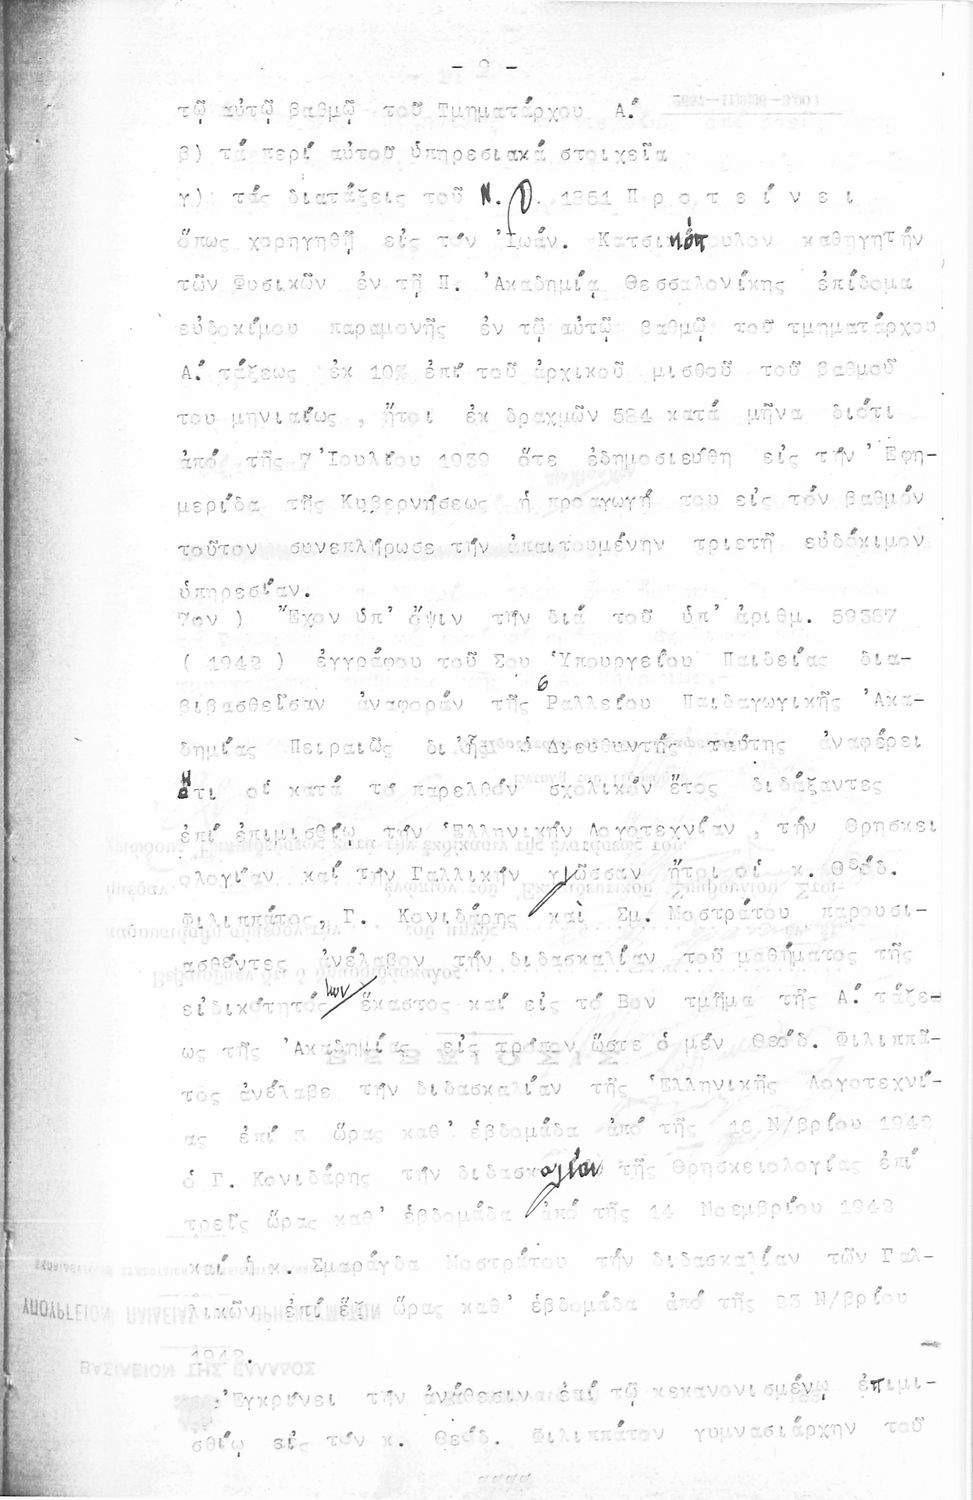 - 9 -
τῷ αὐτῷ βαθμῷ τοῦ Τμηματάρχου Α.'
β) τά περί αὐτοῦ ὑπηρεσιακά στοιχεῖα
γ) τάς διατάξεις τοῦ Ν. Δ. 1851 Π ρ ο τ ε ί ν ε ι
ὅπως χορηγηθῇ εἰς τόν Ἰωάν. Κατσικόπουλον καθηγητήν
τῶν Φυσικῶν ἐν τῇ Π. Ἀκαδημίᾳ Θεσσαλονίκης ἐπίδομα
εὐδοκίμου παραμονῆς ἐν τῷ αὐτῷ βαθμῷ τοῦ τμηματάρχου
Α.' τάξεως ἐκ 10% ἐπί τοῦ ἀρχικοῦ μισθοῦ τοῦ βαθμοῦ
του μηνιαίως , ἤτοι ἐκ δραχμῶν 584 κατά μῆνα διότι
ἀπό τῆς 7 Ἰουλίου 1939 ὅτε ἐδημοσιεύθη εἰς τήν Ἐφη-
μερίδα τῆς Κυβερνήσεως ἡ προαγωγή του εἰς τόν βαθμόν
τοῦτον συνεπλήρωσε τήν ἀπαιτουμένην τριετῆ εὐδόκιμον
ὑπηρεσίαν.
7ον ) Ἔχον ὑπ' ὄψιν τήν διά τοῦ ὑπ' ἀριθμ. 59387
( 1942 ) ἐγγράφου τοῦ Σου Ὑπουργείου Παιδείας δια-
βιβασθεῖσαν ἀναφοράν τῆς Ραλλείου Παιδαγωγικῆς Ἀκα-
δημίας Πειραιῶς δι' ἧς ὁ Διευθυντής ταύτης ἀναφέρει
ὅτι οἱ κατά τό παρελθόν σχολικόν ἔτος διδάξαντες
ἐπί ἐπιμισθίῳ τήν Ἑλληνικήν Λογοτεχνίαν , τήν Θρησκει
ολογίαν καί τήν Γαλλικήν γλῶσσαν ἤτοι οἱ κ. Θεόδ.
Φιλιππάτος, Γ. Κονιδάρης καὶ Σμ. Μοστράτου παρουσι-
ασθέντες ἀνέλαβον τήν διδασκαλίαν τοῦ μαθήματος τῆς
εἰδικότητός των ἕκαστος καί εἰς τό Βον τμῆμα τῆς Α.' τάξε-
ως τῆς Ἀκαδημίας εἰς τρόπον ὥστε ὁ μέν Θεόδ. Φιλιππᾶ-
τος ἀνέλαβε τήν διδασκαλίαν τῆς Ἑλληνικῆς Λογοτεχνί-
ας ἐπί 3 ὥρας καθ' ἑβδομάδα ἀπό τῆς 16 Ν/βρίου 1942
ὁ Γ. Κονιδάρης τήν διδασκαλίαν τῆς Θρησκειολογίας ἐπί
τρεῖς ὥρας καθ' ἑβδομάδα ἀπό τῆς 14 Νοεμβρίου 1942
καί ἡ κ. Σμαράγδα Μοστράτου τήν διδασκαλίαν τῶν Γαλ-
λικῶν ἐπί ἕξ ὥρας καθ' ἑβδομάδα ἀπό τῆς 23 Ν/βρίου
1942.
Ἐγκρίνει τήν ἀνάθεσιν ἐπί τῷ κεκανονισμένῳ ἐπιμι-
σθίῳ εἰς τόν κ. Θεόδ. Φιλιππάτον γυμνασιάρχην τοῦ